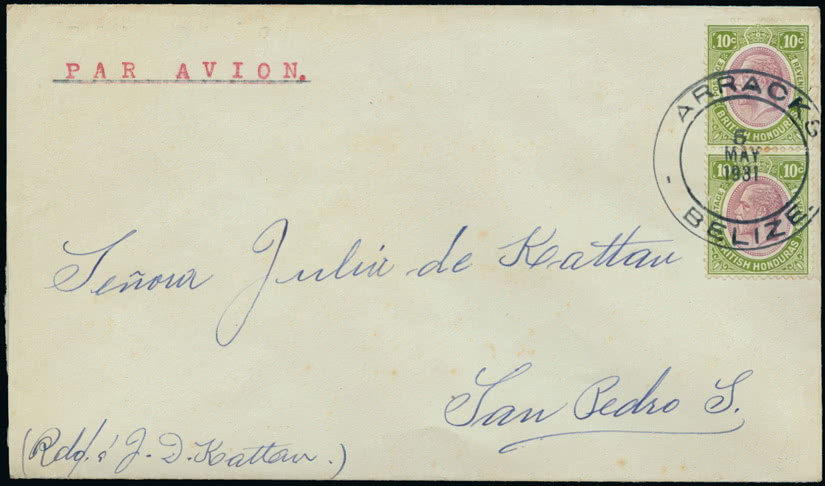 PAR AVION.
10c 10c
POSTAGE REVENUE
BRITISH HONDURAS
ARRACKS
6
MAY
1931
- BELIZE -
10c 10c
BRITISH HONDURAS
Señora Julia de Kattan
San Pedro S.
( J. D. Kattan.)